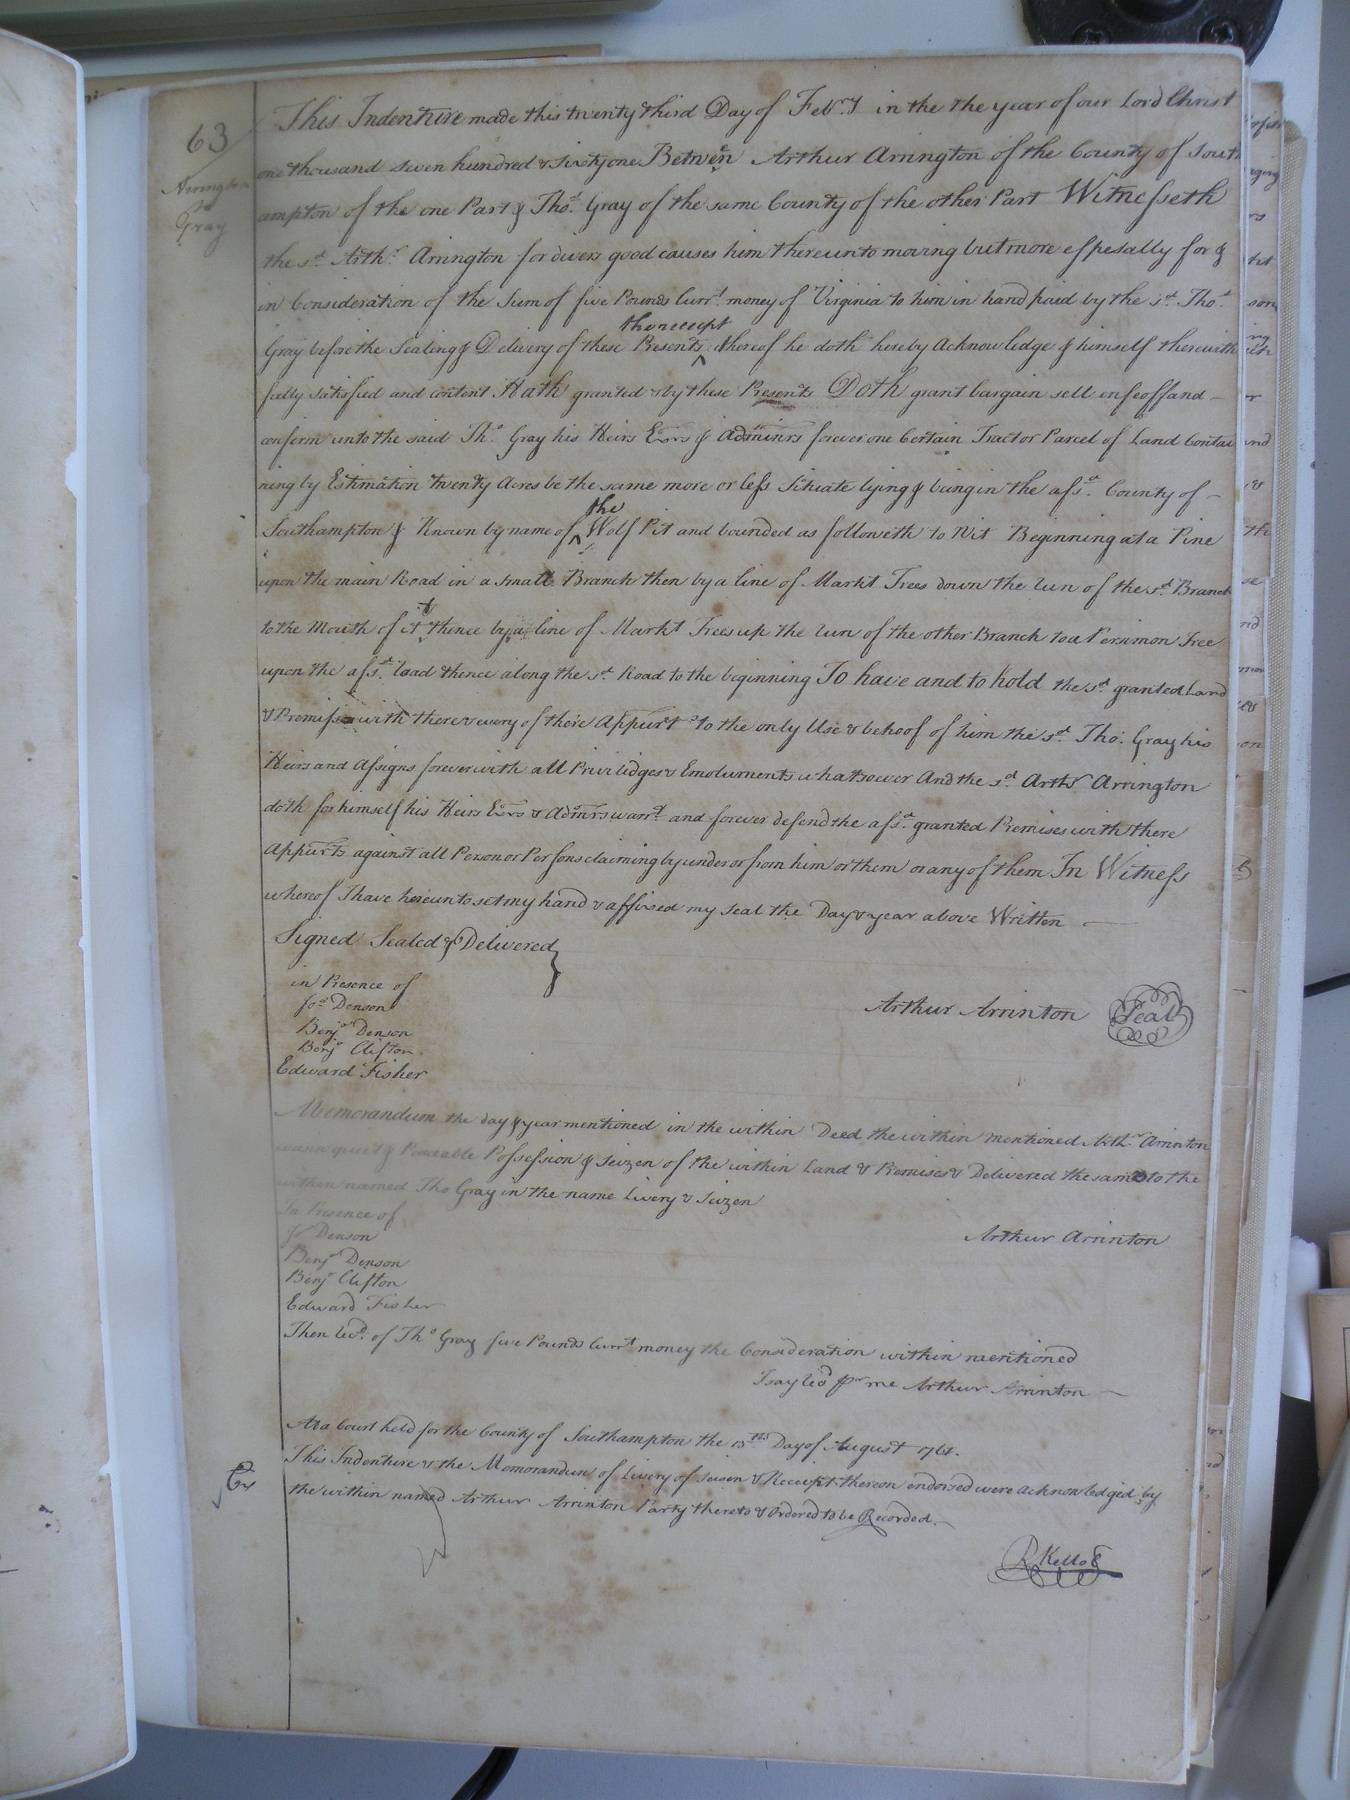 63
Arrington
to
Gray
This Indenture made this twenty third Day of Febry in the the year of our Lord Christ
one thousand seven hundred & sixty one Between Arthur Arrington of the County of South
ampton of the one Part & Thos. Gray of the same County of the other Part Witnesseth
the sd. Arthr. Arrington for divers good causes him thereunto moving but more espesally for &
in Consideration of the Sum of five Pounds Currt. money of Virginia to him in hand paid by the sd. Thos.
Gray before the Sealing & Delivery of these Presents the receipt thereof he doth hereby Acknowledge & himself therewith
fully satisfied and content Hath granted & by these Presents Doth grant bargain sell enfeoff and
confirm unto the said Tho. Gray his Heirs Exors & Adminrs forever one Certain Tract or Parcel of Land Contai
ning by Estimation twenty Acres be the same more or less Situate lying & being in the afsd. County of
Southampton & Known by name of the Wolf Pit and bounded as followeth to Wit Beginning at a Pine
upon the main Road in a small Branch then by a line of Markt Trees down the run of the sd. Branch
to the Mouth of it thence by a line of Markt Trees up the run of the other Branch to a Persimon Tree
upon the afsd. road thence along the sd. Road to the beginning To have and to hold the sd. granted Land
& Premises with there & every of there Appurts to the only Use & behoof of him the sd. Tho. Gray his
Heirs and Assigns forever with all Priviledges & Emoluments whatsoever And the sd. Arthr Arrington
doth for himself his Heirs Exors & Admrs warrt. and forever defend the afsd. granted Premises with there
Appurts against all Person or Persons claiming by under or from him or them or any of them In Witness
whereof I have hereunto set my hand & affixed my seal the Day & year above Written
Signed Sealed & Delivered
in Presence of
Jos Denson
Benjan Denson
Benja Clifton
Edward Fisher
Arthur Arrinton Seal
Memorandum the day & year mentioned in the within Deed the within mentioned Arthr Arrinton
was in quiet & Peaceable Possession & Seizen of the within Land & Premises & Delivered the same to the
within named Tho Gray in the name Livery & Seizen
In Presence of
Jo Denson
Benja Denson
Benja Clifton
Edward Fisher
Arthur Arrinton
Then Recd. of Tho Gray five Pounds Currt money the Consideration within mentioned
I say Recd pr me Arthur Arrinton
At a Court held for the County of Southampton the 13th Day of August 1761.
This Indenture & the Memorandum of Livery of Seisen & Receipt thereon endorsed were acknowledged by
the within named Arthur Arrinton Party thereto & Ordered to be Recorded.
R Kello C